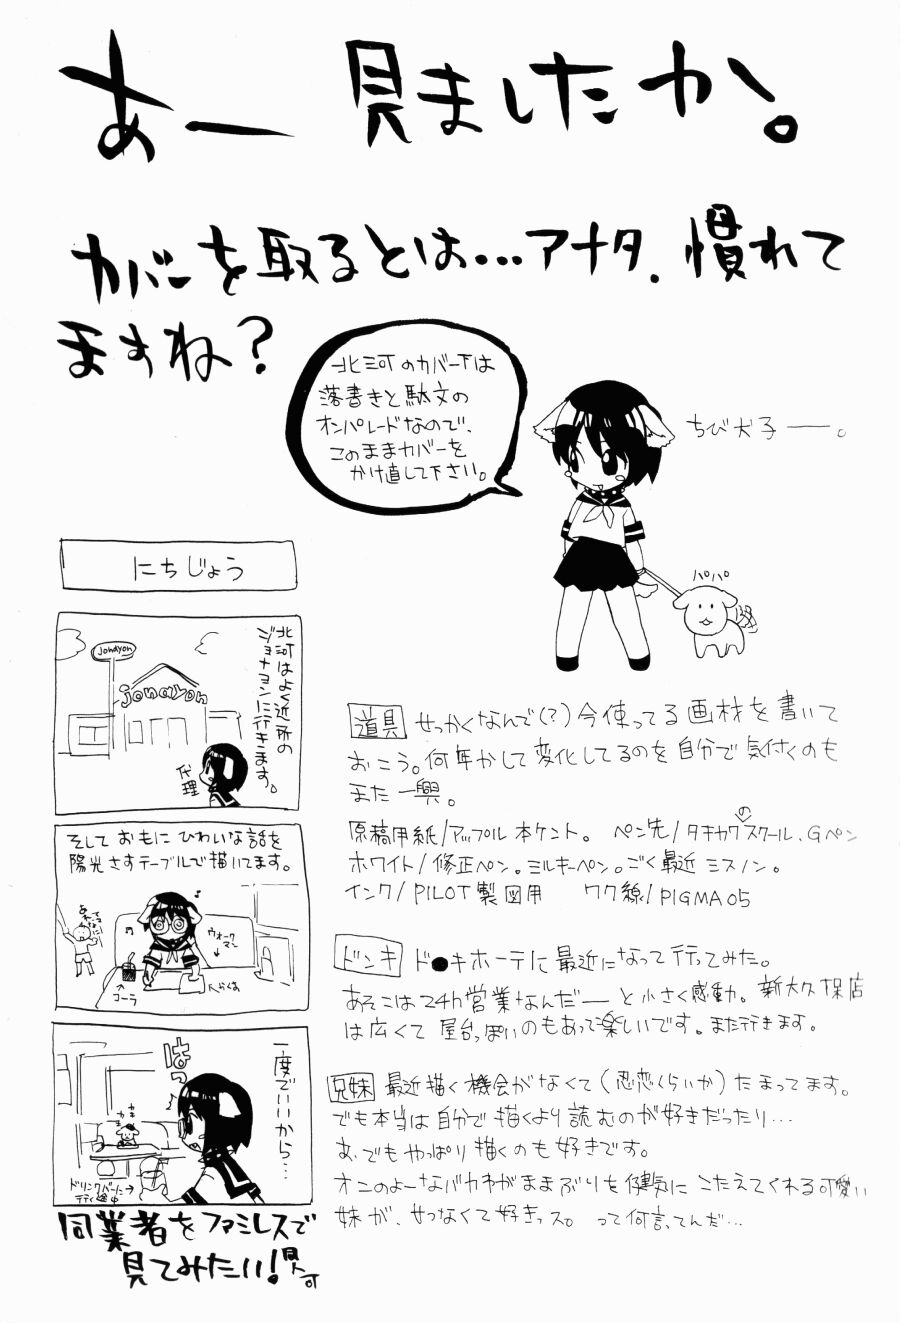 あー 見ましたか。
カバーを取るとは…アナタ、慣れて
ますね?
北河のカバー下は
落書きと駄文の
オンパレードなので、
このままカバーを
かけ直して下さい。
ちび犬子――。
パパパ
にちじょう
北河はよく近所の
ジョナヨンに行きます。
jonayon
jonayon
代理
そしておもにひわいな話を
陽光さすテーブルで描いてます。
ウォーク
マン
コーラ
一度でいいから…
はっ
カキ
カキ
ドリンクバーに→
行く途中
同業者をファミレスで
見てみたい!
道具 せっかくなんで(?)今使ってる画材を書いて
おこう。何年かして変化してるのを自分で気付くのも
また一興。
原稿用紙/アップル本ケント。 ペン先/タチカワのスクール、Gペン
ホワイト/修正ペン。ミルキーペン。ごく最近ミスノン。
インク/PILOT製図用 ワク線/PIGMA05
ドンキ ド●キホーテに最近になって行ってみた。
あそこは24h営業なんだ――と小さく感動。新大久保店
は広くて屋台っぽいのもあって楽しいです。また行きます。
兄妹 最近描く機会がなくて(忍恋くらいか)たまってます。
でも本当は自分で描くより読むのが好きだったり…
あ、でもやっぱり描くのも好きです。
オニのよーなバカわがままぶりを健気にこたえてくれる可愛い
妹が、せつなくて好きっス。って何言ってんだ…